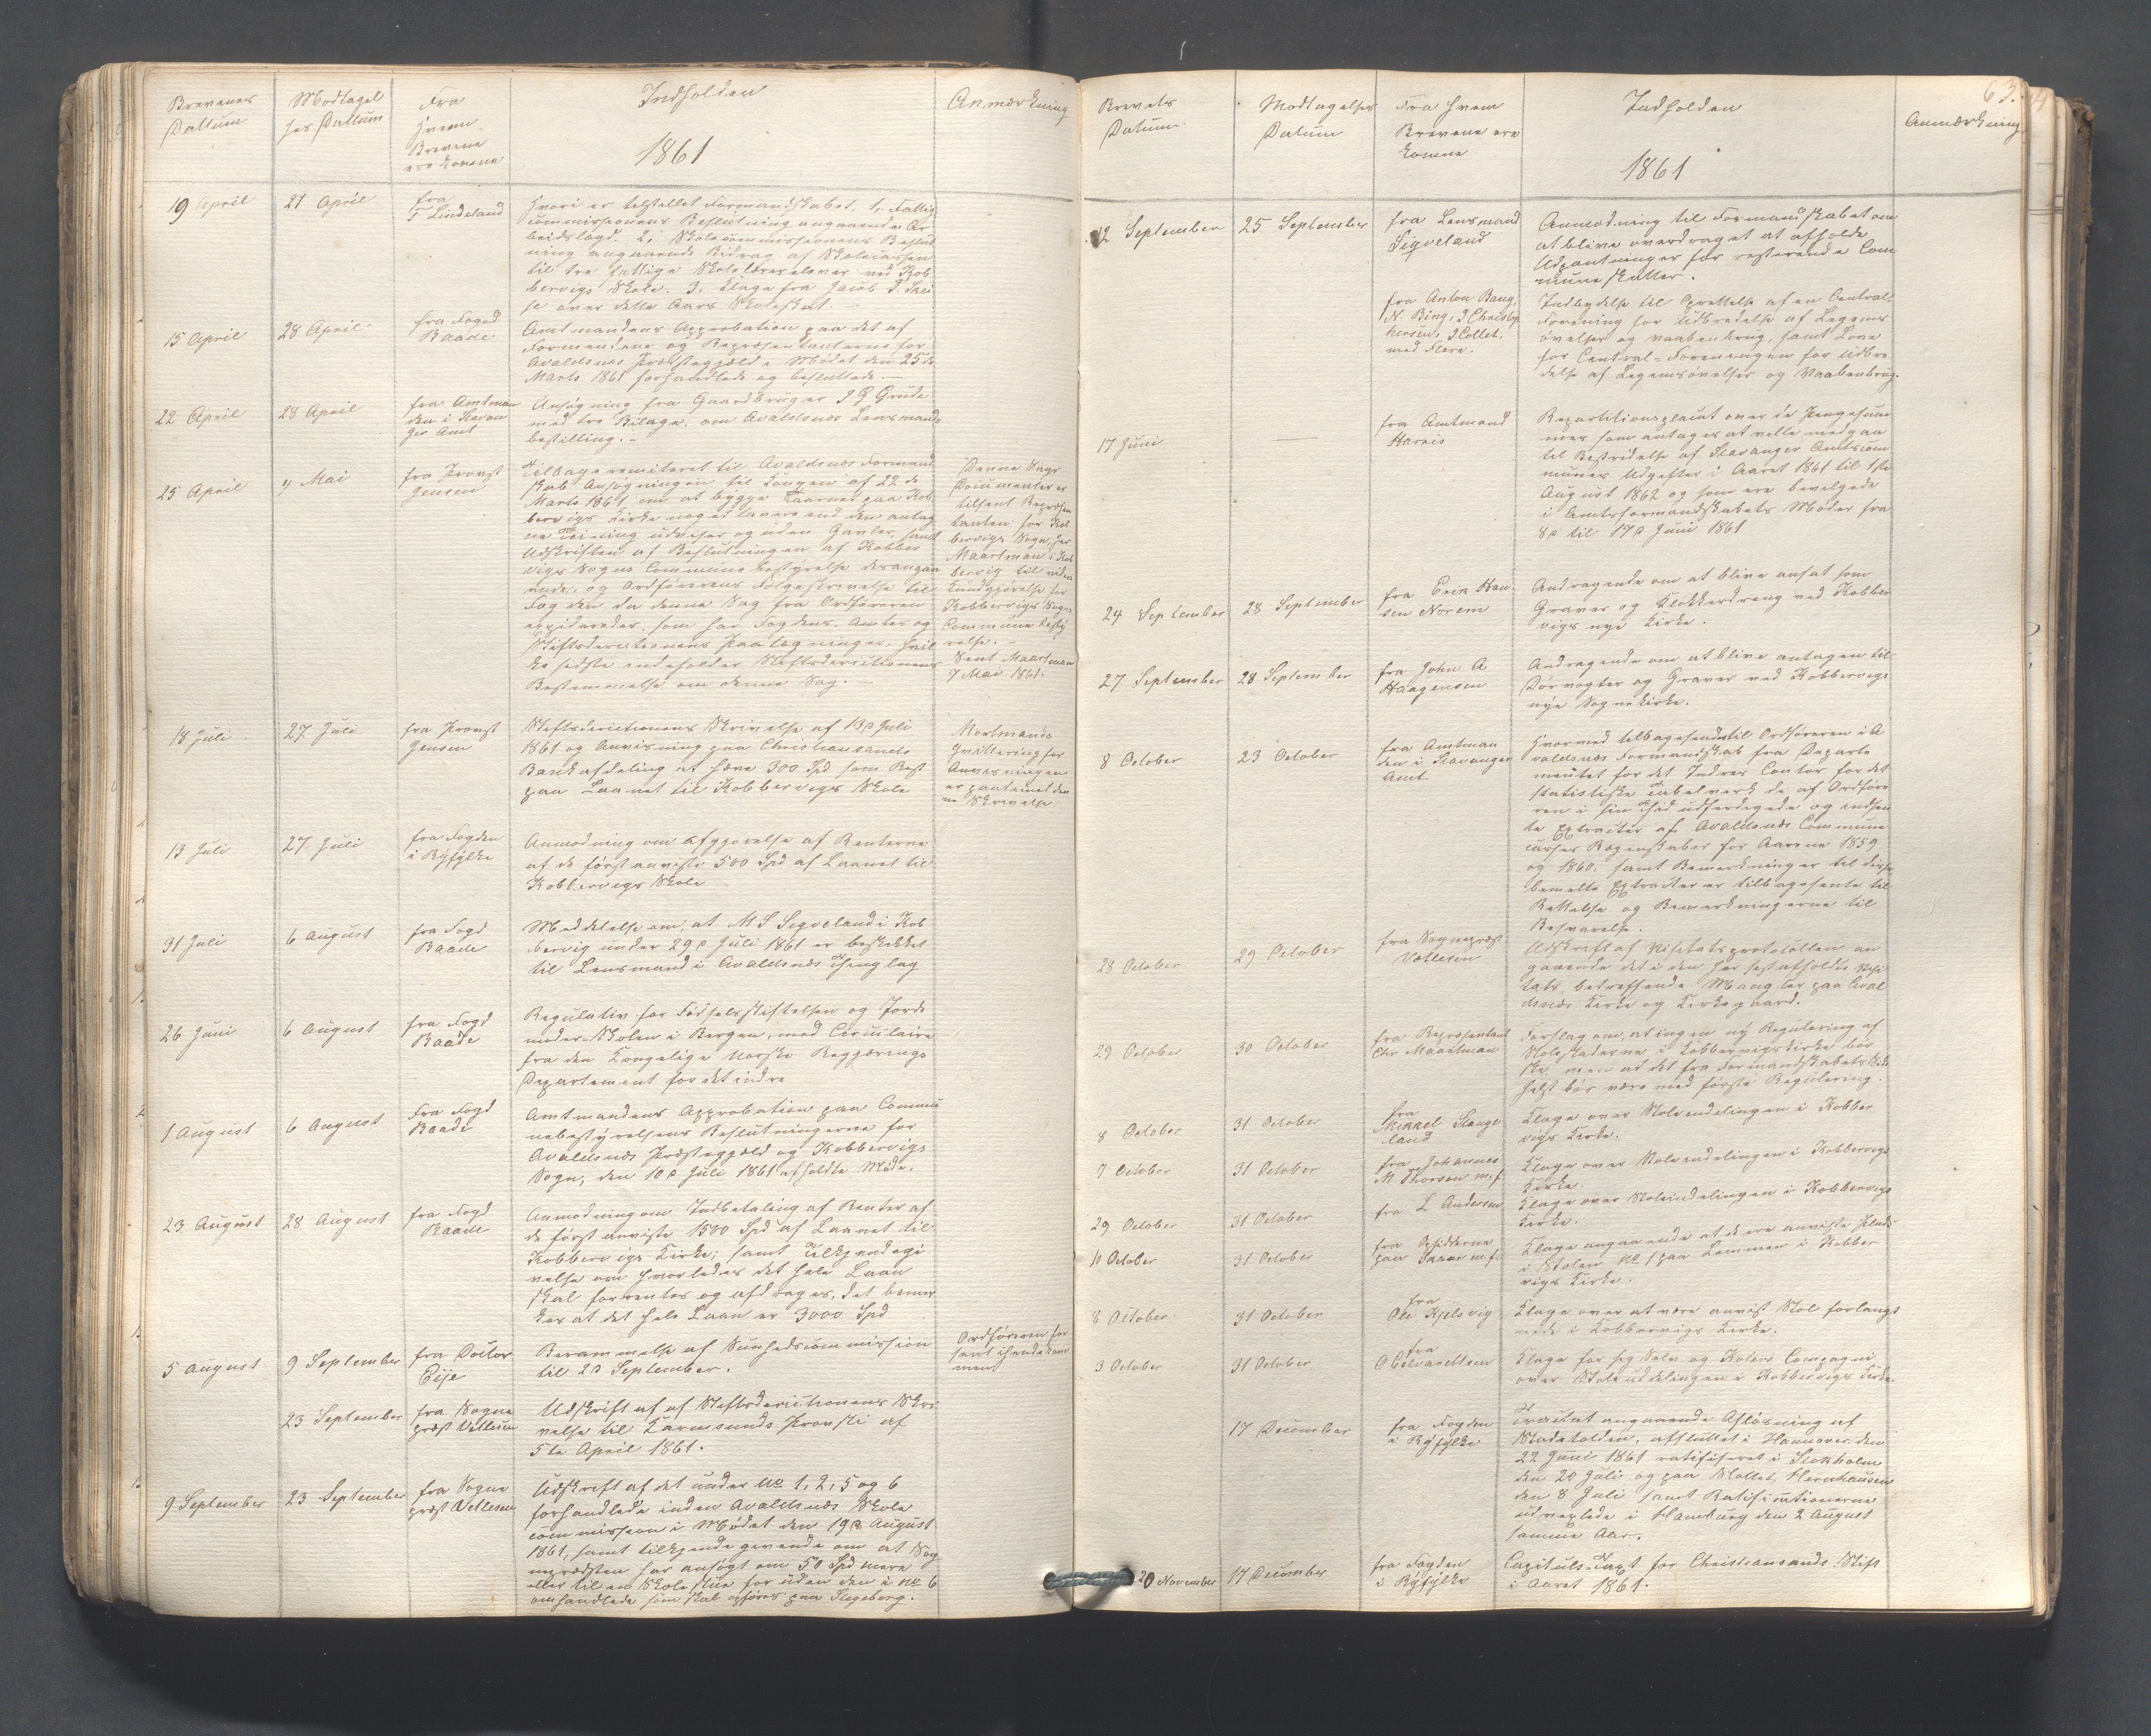 Brevenes Dattum
Modtagelses Dattum
Fra Hvem Brevene ere komne
Indholden
1861
Anmærkning
19 April
27 April
fra T Lindeland
Hvori er tilstillet Formandskabet. 1, Fattig
commissionens Beslutning angaaende Ar
beidslægd. 2, Skolecommissionens Beslut
ning angaaende Bidrag af Skolecassen
til tre fattige Skolelærerelever ved Kob
bervigs Skole. 3, Klage fra Jacob
se over dette Aars Skoleskat.
15 April
28 April
fra Foged Baade
Amtmandens Approbation paa det af
Formændene og Repræsentanterne for
Avaldsnæs Præstegjæld i Mødet den 25de
Marts 1861 forhandlede og besluttede.
22 April
28 April
fra Amtman
den i Stavan
ger Amt
Ansøgning fra Gaardbruger J G Grude
med tre Bilage, om Avaldsnæs Lensmands
bestilling.
25 April
4 Mai
fra Provst Jensen
Tilbageremiteret til Avaldsnæs Formand
skab Ansøgningen til Kongen af 22de
Marts 1861 om at bygge Taarnet paa Kob
bervigs Kirke noget lavere end den antag
ne Teining udviser og uden Gavler, samt
Udskriften af Beslutningen af Kobber
vigs Sogns Communebestyrelse desangaa
ende, og Ordførerens Følgeskrivelse til
Fogden da denne Sag fra Ordføreren
expideredes, som har Fogdens, Amtes og
Stiftsderictionens Paategninger, hvil
ke sidste indeholder Stiftsderictionens
Bestemmelse om denne Sag.
Denne Sags
Documenter er
tilsent Repræsen
tanten for Kob
bervigs Sogn, Hr
Maartman i Kob
bervig til viden
Kundgjørelse for
Kobbervigs Sogns
Communebesty
relse.
Sent Maartman
7 Mai 1861.
18 Juli
27 Juli
fra Provst Jensen
Stiftsderictionens Skrivelse af 13de Juli
1861 og Anvisning paa Christiansands
Bankafdeling at hæve 300 Spd som Rest
paa Laanet til Kobbervigs Skole
Mortmands
Qvittering for
Anvisningen
er paategnet den
ne Skrivelse
13 Juli
27 Juli
fra Fogden
i Ryfylke
Anmodning om afgjørelse af Renterne
af de først anviste 500 Spd af Laanet til
Kobbervigs Skole
31 Juli
6 August
fra Fogd Baade
Meddelelse om, at M S Sigveland i Kob
bervig under 29de Juli 1861 er beskikket
til Lensmand i Avaldsnæs Thinglag
26 Juni
6 August
fra Fogd Baade
Regulativ for Fødselsstiftelsen og Jorde
moder-Skolen i Bergen, med Circulaire
fra den Kongelige Norske Regjerings
Departement for det indre
1 August
6 August
Fra Fogd Baade
Amtmandens Approbation paa Commu
nebestyrelsens Beslutningerne for
Avaldsnæs Præstegjæld og Kobbervigs
Sogn, den 10de Juli 1861 afholdte Møde.
23 August
28 August
fra Fogd Baade
Anmodning om Indbetaling af Renter af
de først anviste 1500 Spd af Laanet til
Kobbervigs Kirke; samt Tilkjendegi
velse om hvorledes det hele Laan
skal forrentes og afdrages, det bemer
kes at det hele Laan er 3000 Spd
5 August
9 September
fra Doctor Eije
Berammelse af Sundhedscommission
til 2de September.
Ordføreren for
sent ihændekom
ment
23 September
fra Sogne
præst Vettesen
Udskrift af af Stiftsderictionens Skri
velse til Karmsunds Provsti af
5te April 1861.
9 September
23 September
fra Sogne
præst Vettesen
Udskrift af det under No 1, 2, 5 og 6
forhandlede inden Avaldsnæs Skole
commission i Mødet den 19de August
1861, samt tilkjendegivende om at Sog
neprædsten har ansøgt om 50 Spd mere
eller til en Skolestue for uden den i No 6
omhandlede som skal opføres paa Stegeberg.
63.
Brevets Datum
Modtagelses Datum
Fra Hvem Brevene ere komne
Indholden
1861
Anmærkning
12 September
25 September
fra Lensmand
Sigveland
Anmodning til Formandskabet om
at blive overdraget at afholde
Udpantninger for resterende Com
muneskatter.
fra Anton Bang,
N. Bing, J Christop
hersen, J Collet,
med Flere.
Indbydelse til Oprettelse af en Central-
Forening for Udbredelse af Legems
øvelser og vaabenbrug, samt Love
for Central-Foreningen for Udbre
delse af Legemsøvelser og Vaabenbrug.
17 Juni
fra Amtmand
Harris
Repartitionsplacat over de Pengesum
mer som antages at ville medgaa
til Bestridelse af Stavanger Amtscom
munes Udgifter i Aaret 1861 til 1ste
August 1862 og som ere bevilgede
i Amtsformandskabets Møder fra
8de til 17de Juni 1861
24 September
28 September
fra Erik Han
sen Norem
Andragende om at blive ansat som
Graver og Klokkerdreng ved Kobber
vigs nye Kirke.
27 September
28 September
fra John A
Haagensen
Andragende om at blive antagen til
Dørvogter og Graver ved Kobbervigs
nye Sognekirke.
8 October
23 October
fra Amtman
den i Stavanger
Amt
Hvormed tilbagesendes til Ordføreren i A
valdsnæs Formandskab fra Departe
mentet for det Indres Contor for det
statistiske Tabelverk de af Ordføre
ren i sin Thid udferdigede og indsen
te Extracter af Avaldsnæs Commune
casses Regenskaber for Aarene 1859
og 1860, samt Bemerkninger til disse
bemelte Extracter er tilbagesente til
Rettelse og Bemerkningerne til
Besvarelse.
28 October
29 October
fra Sognepræst
Vettesen
Udskrift af Visitatsprotocollen an
gaaende det i den her sist afholdte Visi
tats, betreffende Mangler paa Aval
dsnæs Kirke og Kirkegaard.
29 October
30 October
fra Repræsentant
Chr Maartman
Forslag om, at ingen ny Regulering af
Stolestaderne i Kobbervigskirke bør
ske, men at det fra Formandskabets Side
helst bør være med første Regulering.
8 October
31 October
fra
Mikkel Stange
land
Klage over Stoleindelingen i Kobber
vigs Kirke.
7 October
31 October
fra Johannes
M Thorsen m.f.
Klage over Stoleindelingen i Kobbervigs
Kirke.
29 October
31 October
fra L Andersen
Klage over Stoleindelingen i Kobbervigs
Kirke.
11 October
31 October
fra Opsidderne
paa m.fl.
Klage angaaende at de ere anviste Plads
i Stolen No 1 paa Lemmen i Kobber
vigs Kirke.
8 October
31 October
fra
Ole Kjelsvig
Klage over at være anvist Stol forlangt
nede i Kobbervigs Kirke.
3 October
31 October
fra
O Edvardtsen
Klage for sig Selv og Kolers Compagni
over Stoleuddelingen i Kobbervigs Kirke.
17 December
fra Fogden
i Ryfylke
Tractat angaaende Afløsning af
Stadetolden, afsluttet i Hannover den
22 Juni 1861 ratifiseret i Stokholm
den 20 Juli og paa Slottet Hernhausen
den 8 Juli samt Ratificationerne
udvexlede i Hamburg den 2 August
samme Aar.
20 November
17 December
fra Fogden
i Ryfylke
Capituls-Taxt for Christiansands Stift
i Aaret 1861.